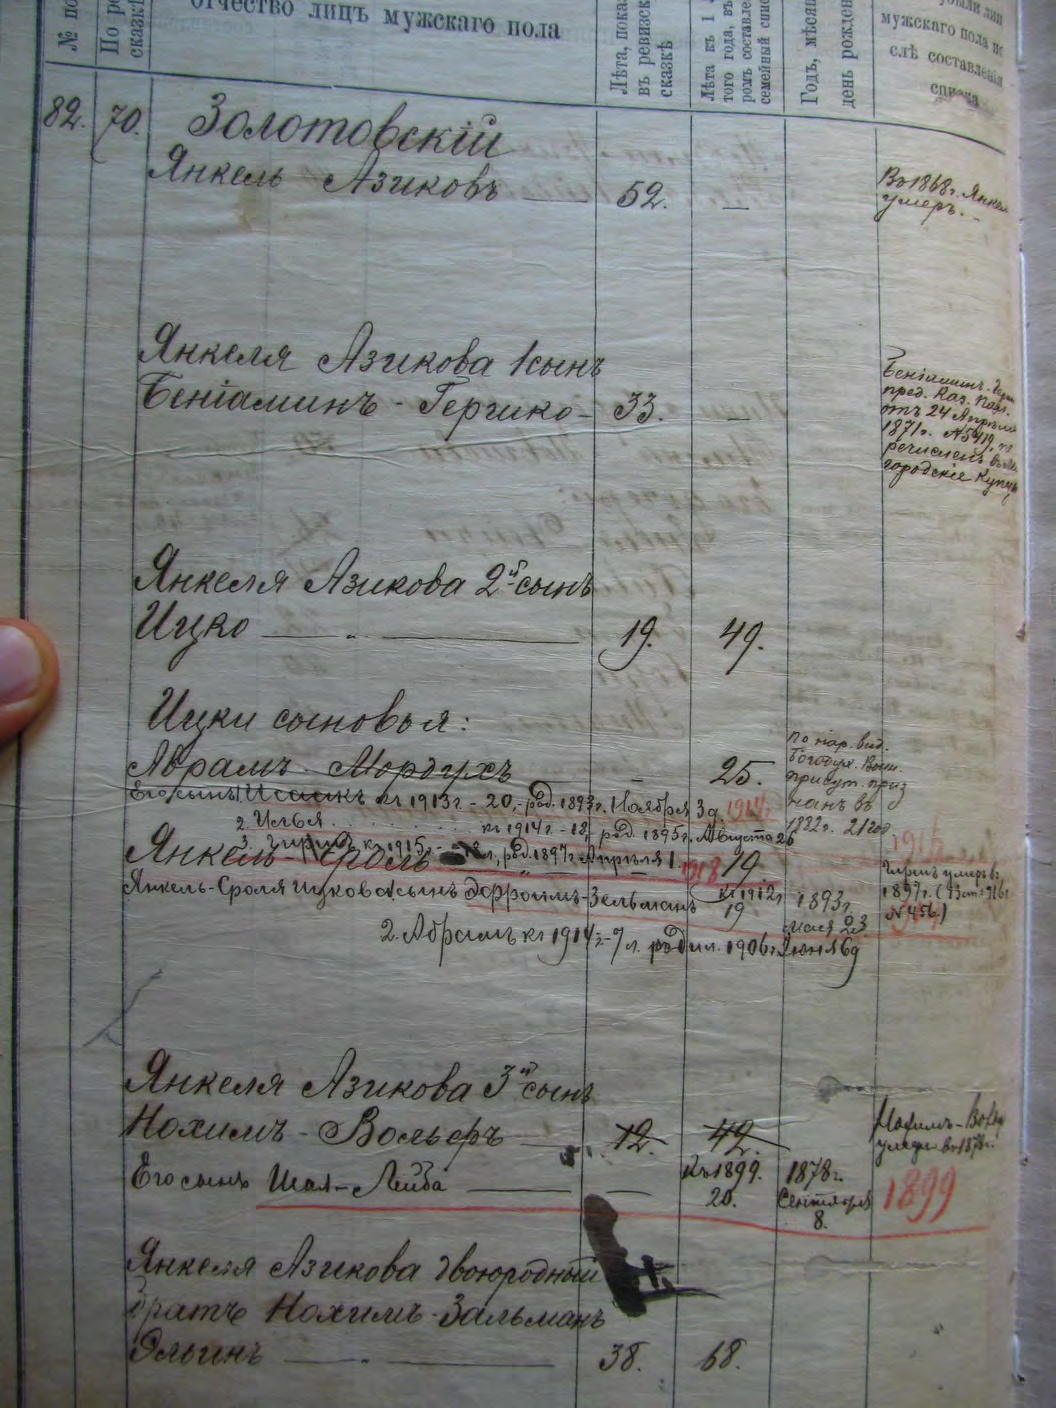 № по
По ре
сказкѣ
отчество лицъ мужскаго пола
Лѣта, пока
въ ревизск
сказкѣ
Лѣта къ 1
того года, въ
ромъ составле
семейный спис
Годъ, мѣся
день рожден
были лиц
мужскаго пола по
слѣ составленія
списка
82. 70. Золотовскій
Янкель Азиковъ 52. —
Въ 1868г. Янкел
умеръ.
Янкеля Азикова 1 сынъ
Беніаминъ - Гершко - 33. —
пред. Каз. Пал.
отъ 24 Апрѣля
1871г. №5419,
речисленъ въ
городскіе Купцы
Янкеля Азикова 2й сынъ
Ицко — „ — 19. 49.
Ицки сыновья:
Абрамъ - Мордухъ — 25.
по нар. вид.
Богодух. Воин.
присут. приз
нанъ въ
1882г. 21 год
Его сынъ 1. Исаакъ къ 1913г - 20, - род. 1893г. Ноября 3 д. 1914г
2. Илья . . . . . къ 1914г - 18, род. 1895г. Августа 26
3. къ 1915г. - 18 л, род. 1897г Апрѣля 1. 1918
Янкель - Сроль — 19.
умеръ въ
1897г.
№ 456.)
Янкель-Сроля Ицковася сынъ Эфроимъ-Зельманъ
къ 1912г
19
1893г
мая 23
2. Абрамъ къ 1914г - 7 л. родил. 1906г. Іюня 6д
Янкеля Азикова 3й сынъ
Нохимъ - Вольфъ — 12. 42.
Нохимъ-Вольф
умеръ въ 1878г.
Его сынъ Шая-Лейба — —
Къ 1899.
20.
1878г.
Сентября
8.
1899
Янкеля Азикова двоюродный
братъ Нохимъ-Зальманъ
Эльинъ — „ — 38. 68.